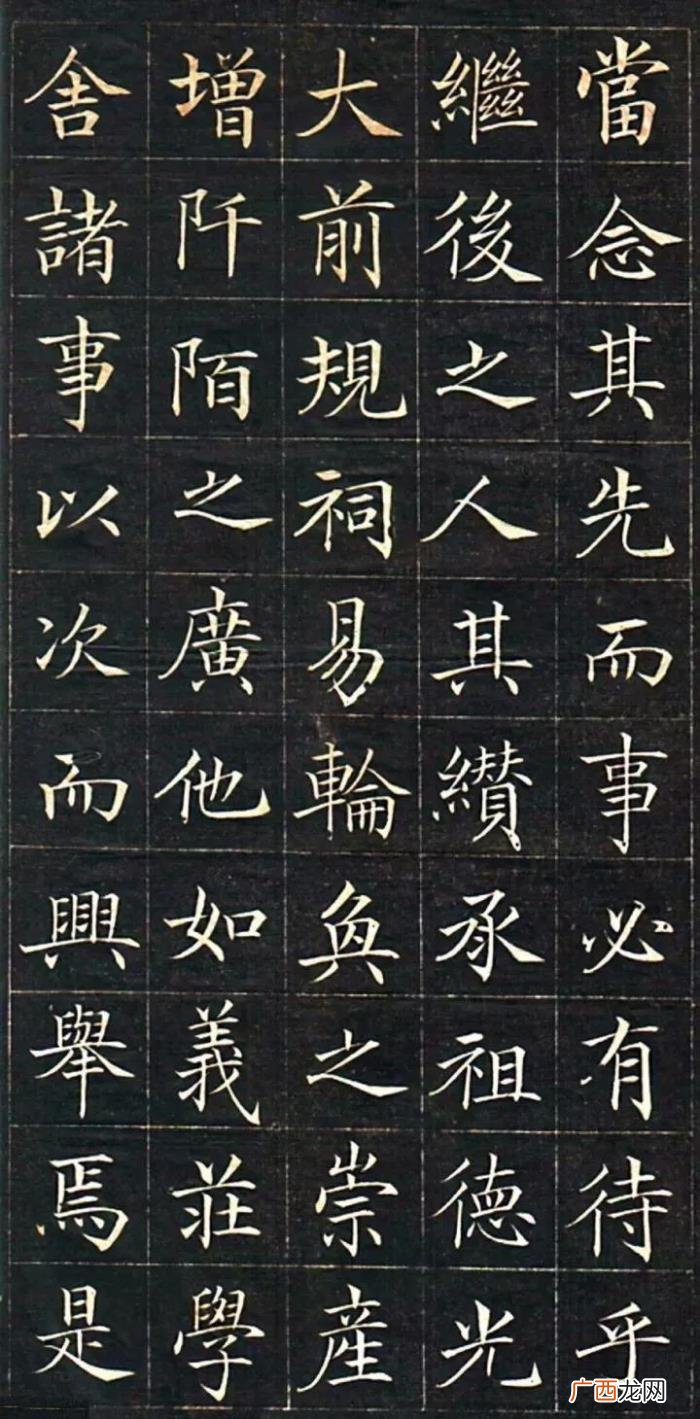 當念其先而事必有待乎
繼後之人其纘承祖德光
大前規祠易輪奐之崇產
增阡陌之廣他如義莊學
舍諸事以次而興舉焉是
广西龙网